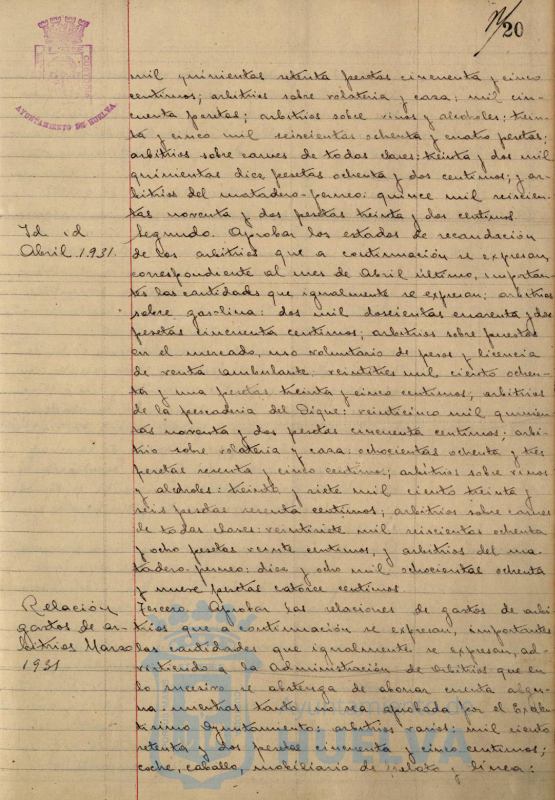 20
AYUNTAMIENTO DE HUELVA
mil quinientas setenta pesetas cincuenta y cinco
centimos; arbitrios sobre volateria y caza: mil cin-
cuenta pesetas; arbitrios sobre vinos y alcoholes: trein-
ta y cinco mil seiscientas ochenta y cuatro pesetas;
arbitrios sobre carnes de todas clases: treinta y dos mil
quinientas doce pesetas ochenta y dos centimos; y ar-
bitrios del matadero-perneo: quince mil seiscien-
tas noventa y dos pesetas treinta y dos centimos.
Id id
Abril 1.931
Segundo. Aprobar los estados de recaudación
de los arbitrios que a continuación se expresan,
correspondiente al mes de Abril último, importan-
tes las cantidades que igualmente se expresan: arbitrios
sobre gasolina: dos mil doscientas cuarenta y dos
pesetas cincuenta centimos; arbitrios sobre puestos
en el mercado, uso voluntario de pesos y licencia
de venta ambulante: veintitres mil ciento ochen-
ta y una pesetas treinta y cinco centimos; arbitrios
de la pescaderia del Dique: veinticinco mil quinien-
tas noventa y dos pesetas cincuenta centimos; arbi-
trio sobre volateria y caza: ochocientas ochenta y tres
pesetas sesenta y cinco centimos; arbitrios sobre vinos
y alcoholes: treinta y siete mil ciento treinta y
seis pesetas sesenta centimos; arbitrios sobre carnes
de todas clases: veintisiete mil seiscientas ochenta
y ocho pesetas veinte centimos, y arbitrios del ma-
tadero-perneo: diez y ocho mil ochocientas ochenta
y nueve pesetas catorce centimos.
Relación
gastos de ar-
bitrios Marzo
1931
Tercero. Aprobar las relaciones de gastos de arbi-
trios que a continuación se expresan, importantes
las cantidades que igualmente se expresan, ad-
virtiendo a la Administración de Arbitrios que en
lo sucesivo se abstenga de abonar cuenta algu-
na mientras tanto no sea aprobada por el Excelen-
tisimo Ayuntamiento: arbitrios varios: mil ciento
setenta y dos pesetas cincuenta y cinco centimos;
coche, caballo, mobiliario de fielato y linea:
HUELVA